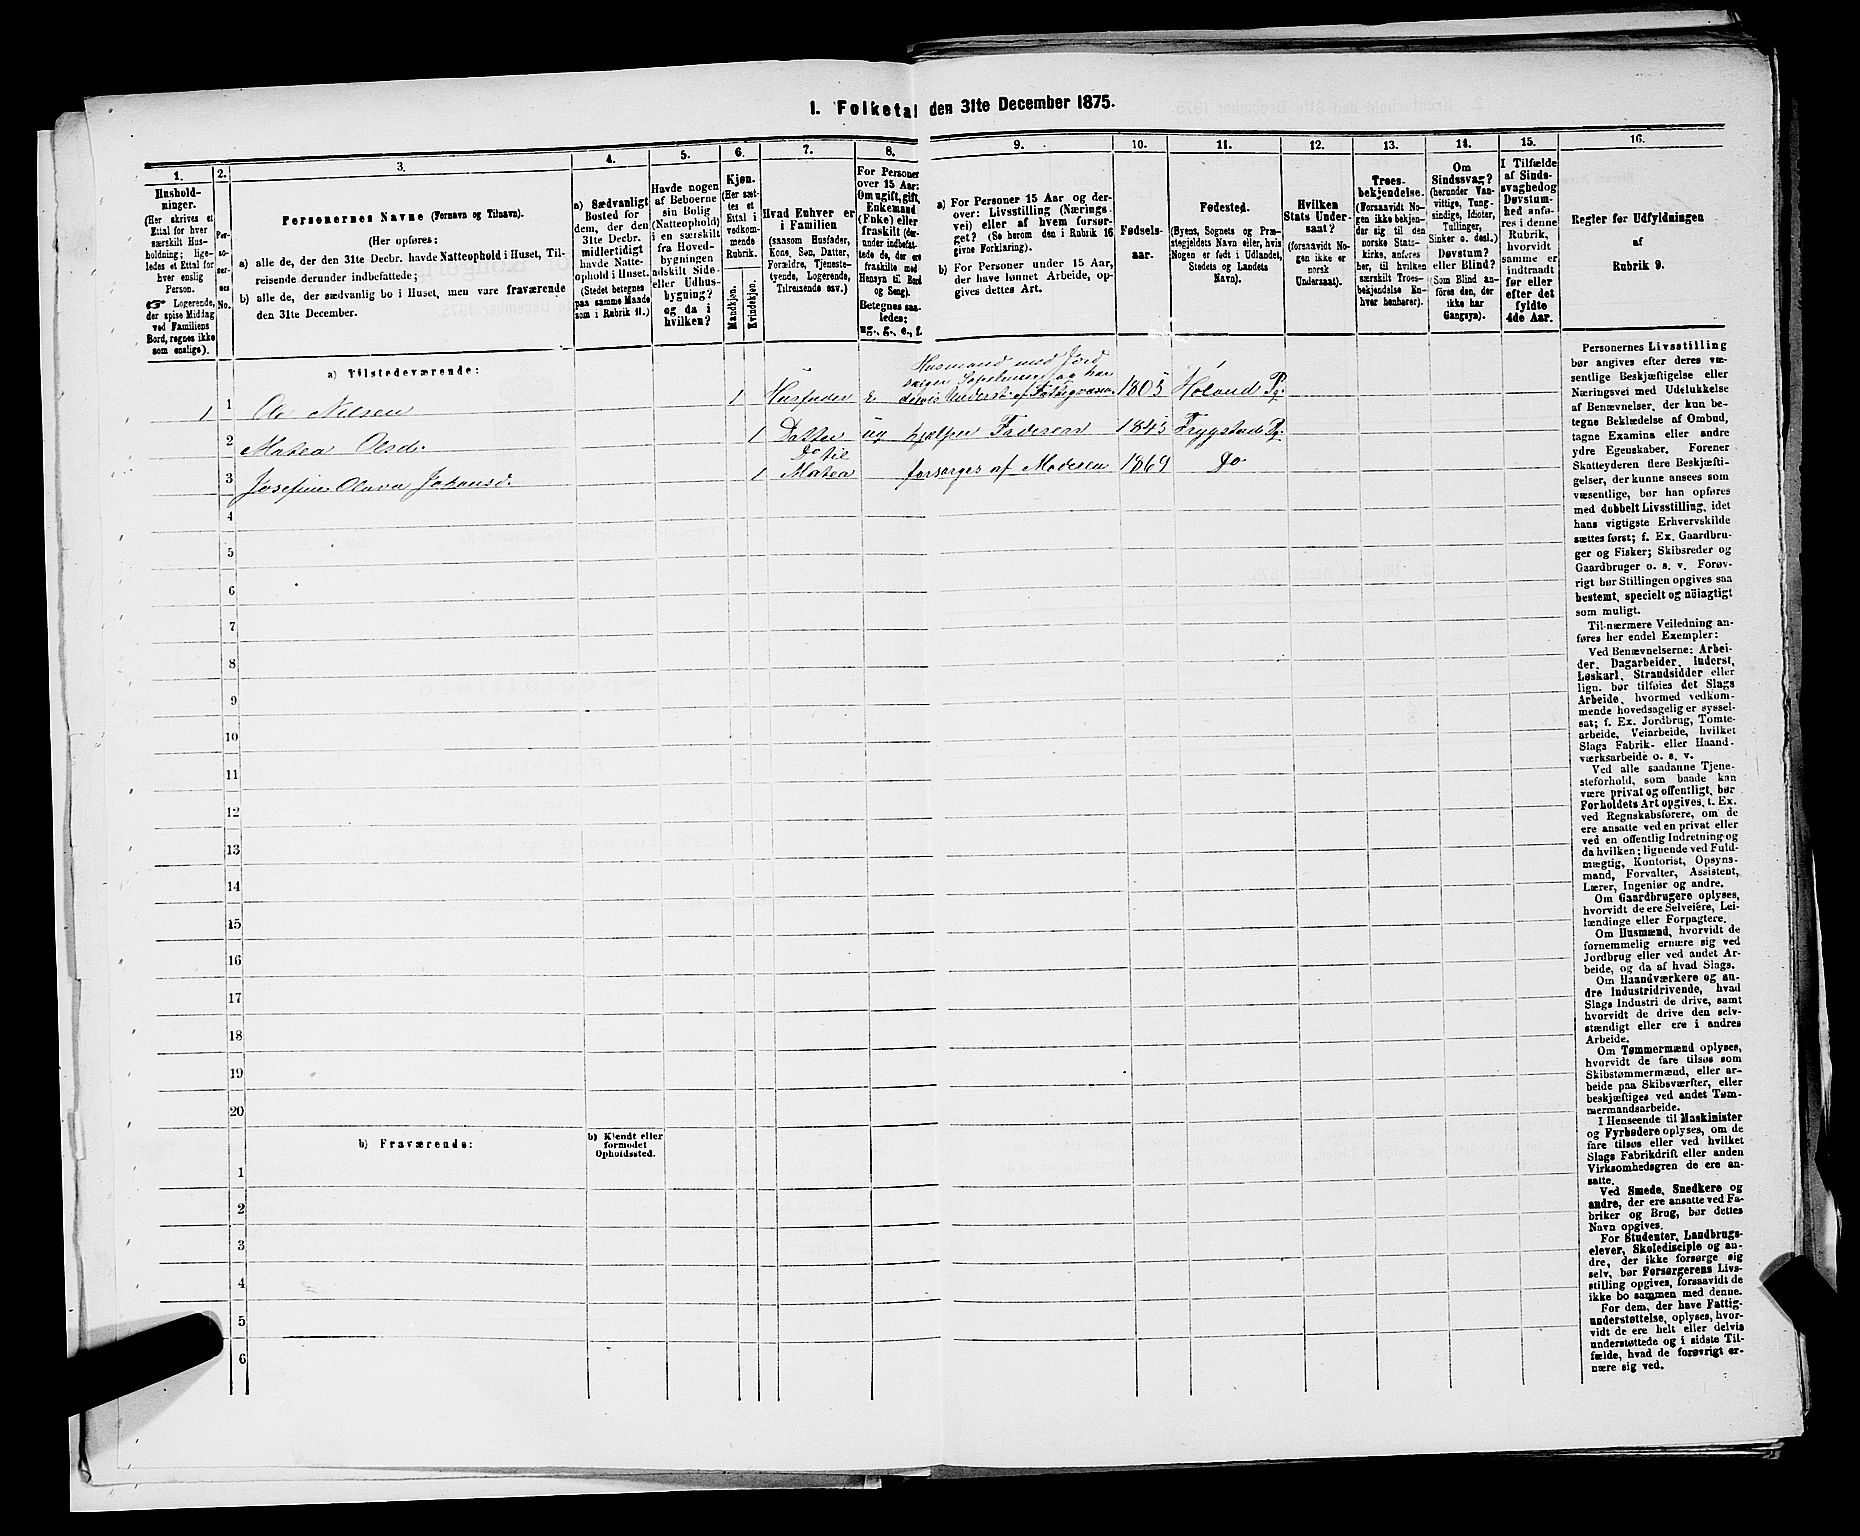 1. Folketal den 31te December 1875.
1.
2.
3.
4.
5.
6.
7.
8.
9.
10.
11.
12.
13.
14.
15.
16.
Hushold-
ninger.
(Her skrives et
Ettal for hver
særskilt Hus-
holdning; lige-
ledes et Ettal for
hver enslig
Person.
☞ Logerende,
der spise Middag
ved Familiens
Bord, regnes ikke
som enslige).
Per-
so-
ner-
nes
No.
Personernes Navne (Fornavn og Tilnavn).
(Her opføres:
a) alle de, der den 31te Decbr. havde Natteophold i Huset, Til-
reisende derunder indbefattede;
b) alle de, der sædvanlig bo i Huset, men vare fraværende
den 31te December.
a) Sædvanligt
Bosted for
dem, der den
31te Decbr.
midlertidigt
havde Natte-
ophold i Huset.
(Stedet betegnes
paa samme Maade
som i Rubrik 11.)
Havde nogen
af Beboerne
sin Bolig
(Natteophold)
i en særskilt
fra Hoved-
bygningen
adskilt Side-
eller Udhus-
bygning?
og da i
hvilken?
Kjøn.
(Her sæt-
tes et
Ettal i
vedkom-
mende
Rubrik.
Mandkjøn.
Kvindekjøn.
Hvad Enhver er
i Familien
(saasom Husfader,
Kone, Søn, Datter,
Forældre, Tjeneste-
tyende, Logerende,
Tilreisende osv.)
For Personer
over 15 Aar:
Om ugift, gift,
Enkemand
(Enke) eller
fraskilt (der-
under indbefat-
tede de, der ere
fraskilte med
Hensyn til Bord
og Seng).
Betegnes saa-
ledes:
ug., g., e., f.
a) For Personer 15 Aar og der-
over: Livsstilling (Nærings-
vei) eller af hvem forsør-
get? (Se herom den i Rubrik 16
givne Forklaring).
b) For Personer under 15 Aar,
der have lønnet Arbeide, op-
gives dettes Art.
Fødsels-
aar.
Fødested.
(Byens, Sognets og Præ-
stegjeldets Navn eller, hvis
Nogen er født i Udlandet,
Stedets og Landets
Navn).
Hvilken
Stats Under-
saat?
(forsaavidt No-
gen ikke er
norsk
Undersaat).
Troes-
bekjendelse.
(Forsaavidt No-
gen ikke bekjen-
der sig til den
norske Stats-
kirke, anføres
her, til hvilken
særskilt Troes-
bekjendelse En-
hver henhører).
Om
Sindssvag?
(herunder Van-
vittige, Tung-
sindige, Idioter,
Tullinger,
Sinker o. desl.)
Døvstum?
eller Blind?
(Som Blind an-
føres den, der
ikke har
Gangsyn).
I Tilfælde
af Sinds-
svaghed og
Døvstum-
hed anfø-
res i denne
Rubrik,
hvorvidt
samme er
indtraadt
før eller
efter det
fyldte
4de Aar.
Regler for Udfyldningen
af
Rubrik 9.
a) Tilstedeværende:
1 1 Ole Nilsen 1 Husfader e. Husmand med Jord 1805 Høland Pg.
2 Matea Olsd. 1 Datter ug hjelper Faderen 1845 Trygstad Pg.
3 Josefine Olava Johansd. 1 Do til Matea forsørges af Moderen 1869 Do
4
5
6
7
8
9
10
11
12
13
14
15
16
17
18
19
20
b) Fraværende:
b) Kjendt eller
formodet
Opholdssted.
1
2
3
4
5
6
Personernes Livsstilling
bør angives efter deres væ-
sentlige Beskjæftigelse eller
Næringsvei med Udelukkelse
af Benævnelser, der kun be-
tegne Beklædelse af Ombud,
tagne Examina eller andre
ydre Egenskaber. Forener
Skatteyderen flere Beskjæfti-
gelser, der kunne ansees som
væsentlige, bør han opføres
med dobbelt Livsstilling, idet
hans vigtigste Erhvervskilde
sættes først; f. Ex. Gaardbru-
ger og Fisker; Skibsreder og
Gaardbruger o. s. v. Forøv-
rigt bør Stillingen opgives saa
bestemt, specielt og nöiagtigt
som muligt.
Til nærmere Veiledning an-
føres her endel Exempler:
Ved Benævnelserne: Arbei-
der, Dagarbeider, Inderst,
Løskarl, Strandsidder eller
lign. bør tilføies det Slags
Arbeide, hvormed vedkom-
mende hovedsagelig er syssel-
sat; f. Ex. Jordbrug, Tomte-
arbeide, Veiarbeide, hvilket
Slags Fabrik- eller Haand-
værksarbeide o. s. v.
Ved alle saadanne Tjene-
steforhold, som baade kan
være privat og offentligt, bør
Forholdets Art opgives, t. Ex.
ved Regnskabsførere, om de
ere ansatte ved en privat eller
ved en offentlig Indretning og
da hvilken; lignende ved Fuld-
mægtig, Kontorist, Opsyns-
mand, Forvalter, Assistent,
Lærer, Ingeniør og andre.
Om Gaardbrugere oplyses,
hvorvidt de ere Selveiére, Lei-
lændinge eller Forpagtere.
Om Husmænd, hvorvidt de
fornemmelig ernære sig ved
Jordbrug eller ved andet Ar-
beide, og da af hvad Slags.
Om Haandværkere og an-
dre Industridrivende, hvad
Slags Industri de drive, samt
hvorvidt de drive den selv-
stændigt eller ere i andres
Arbeide.
Om Tømmermænd oplyses,
hvorvidt de fare tilsøs som
Skibstømmermænd, eller ar-
beide paa Skibsværfter, eller
beskjæftiges ved andet Tøm-
mermandsarbeide.
I Henseende til Maskinister
og Fyrbødere oplyses, om de
fare tilsøs eller ved hvilket
Slags Fabrikdrift eller anden
Virksomhedsgren de ere an-
satte.
Ved Smede, Snedkere og
andre, der ere ansatte ved Fa-
briker og Brug, bør dettes
Navn opgives.
For Studenter, Landbrugs-
elever, Skoledisciple og an-
dre, der ikke forsørge sig
selv, bør Forsørgerens Livs-
stilling opgives, forsaavidt de
ikke bo sammen med denne.
For dem, der have Fattig-
understøttelse, oplyses, hvor-
vidt de ere helt eller delvis
understøttede og i sidste Til-
fælde, hvad de forøvrigt er-
nære sig ved.